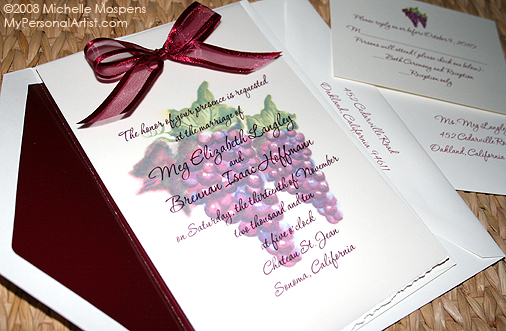 ©2008 Michelle Mospens
MyPersonalArtist.com
The honor of your presence is requested
at the marriage of
Meg Elizabeth Langley
and
Brennan Isaac Hoffmann
on Saturday, the thirteenth of November
two thousand and ten
at five o'clock
Chateau St. Jean
Sonoma, California
Please reply on or before October 9, 2010
M
Persons will attend (please check one below):
Both Ceremony and Reception
Reception only
452 Cedarville Road
Oakland, California 94611
Ms. Meg Langley
452 Cedarville Road
Oakland, California